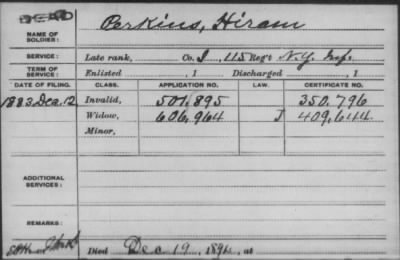 DEAD
NAME OF SOLDIER: Perkins, Hiram
SERVICE: Late rank, Co. I, 115 Reg't N.Y. Inf.
TERM OF SERVICE: Enlisted , 1 Discharged , 1
DATE OF FILING. CLASS. APPLICATION NO. LAW. CERTIFICATE NO.
1883, Dec. 12 Invalid, 501,895 350,796
Widow, 606,964 J 409,644
Minor,
ADDITIONAL SERVICES:
REMARKS:
Died Dec 19, 1894, at